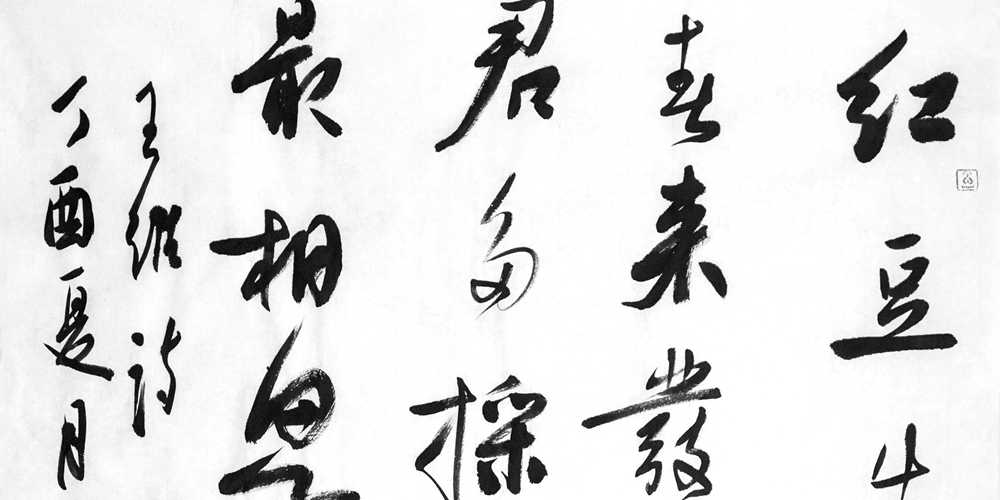 红豆生
春来發
君多採
最相思
王维诗
丁酉夏月